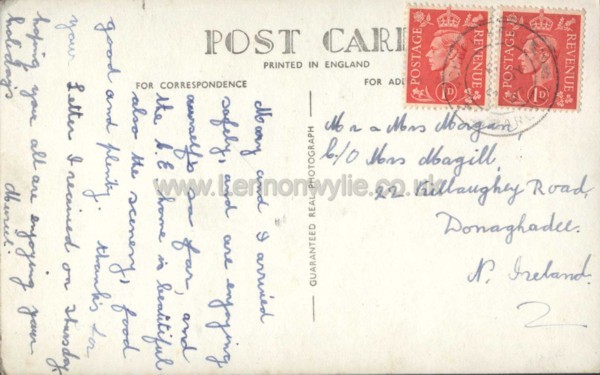 POST CARD
PRINTED IN ENGLAND
FOR CORRESPONDENCE
FOR ADD
GUARANTEED REAL PHOTOGRAPH
POSTAGE REVENUE
1D
POSTAGE REVENUE
1D
Mary and I arrived
safely, and are enjoying
ourselfs so far, and
the C.E. home is beautiful
also the scenery, food
good and plenty. thanks for
your Letter I received on thursday
hoping you all are enjoying your
holidays
Muriel.
Mr & Mrs Morgan,
C/O Mrs Magill
22 Killaughey Road,
Donaghadee.
N. Ireland.
www.Lennonwylie.co.uk